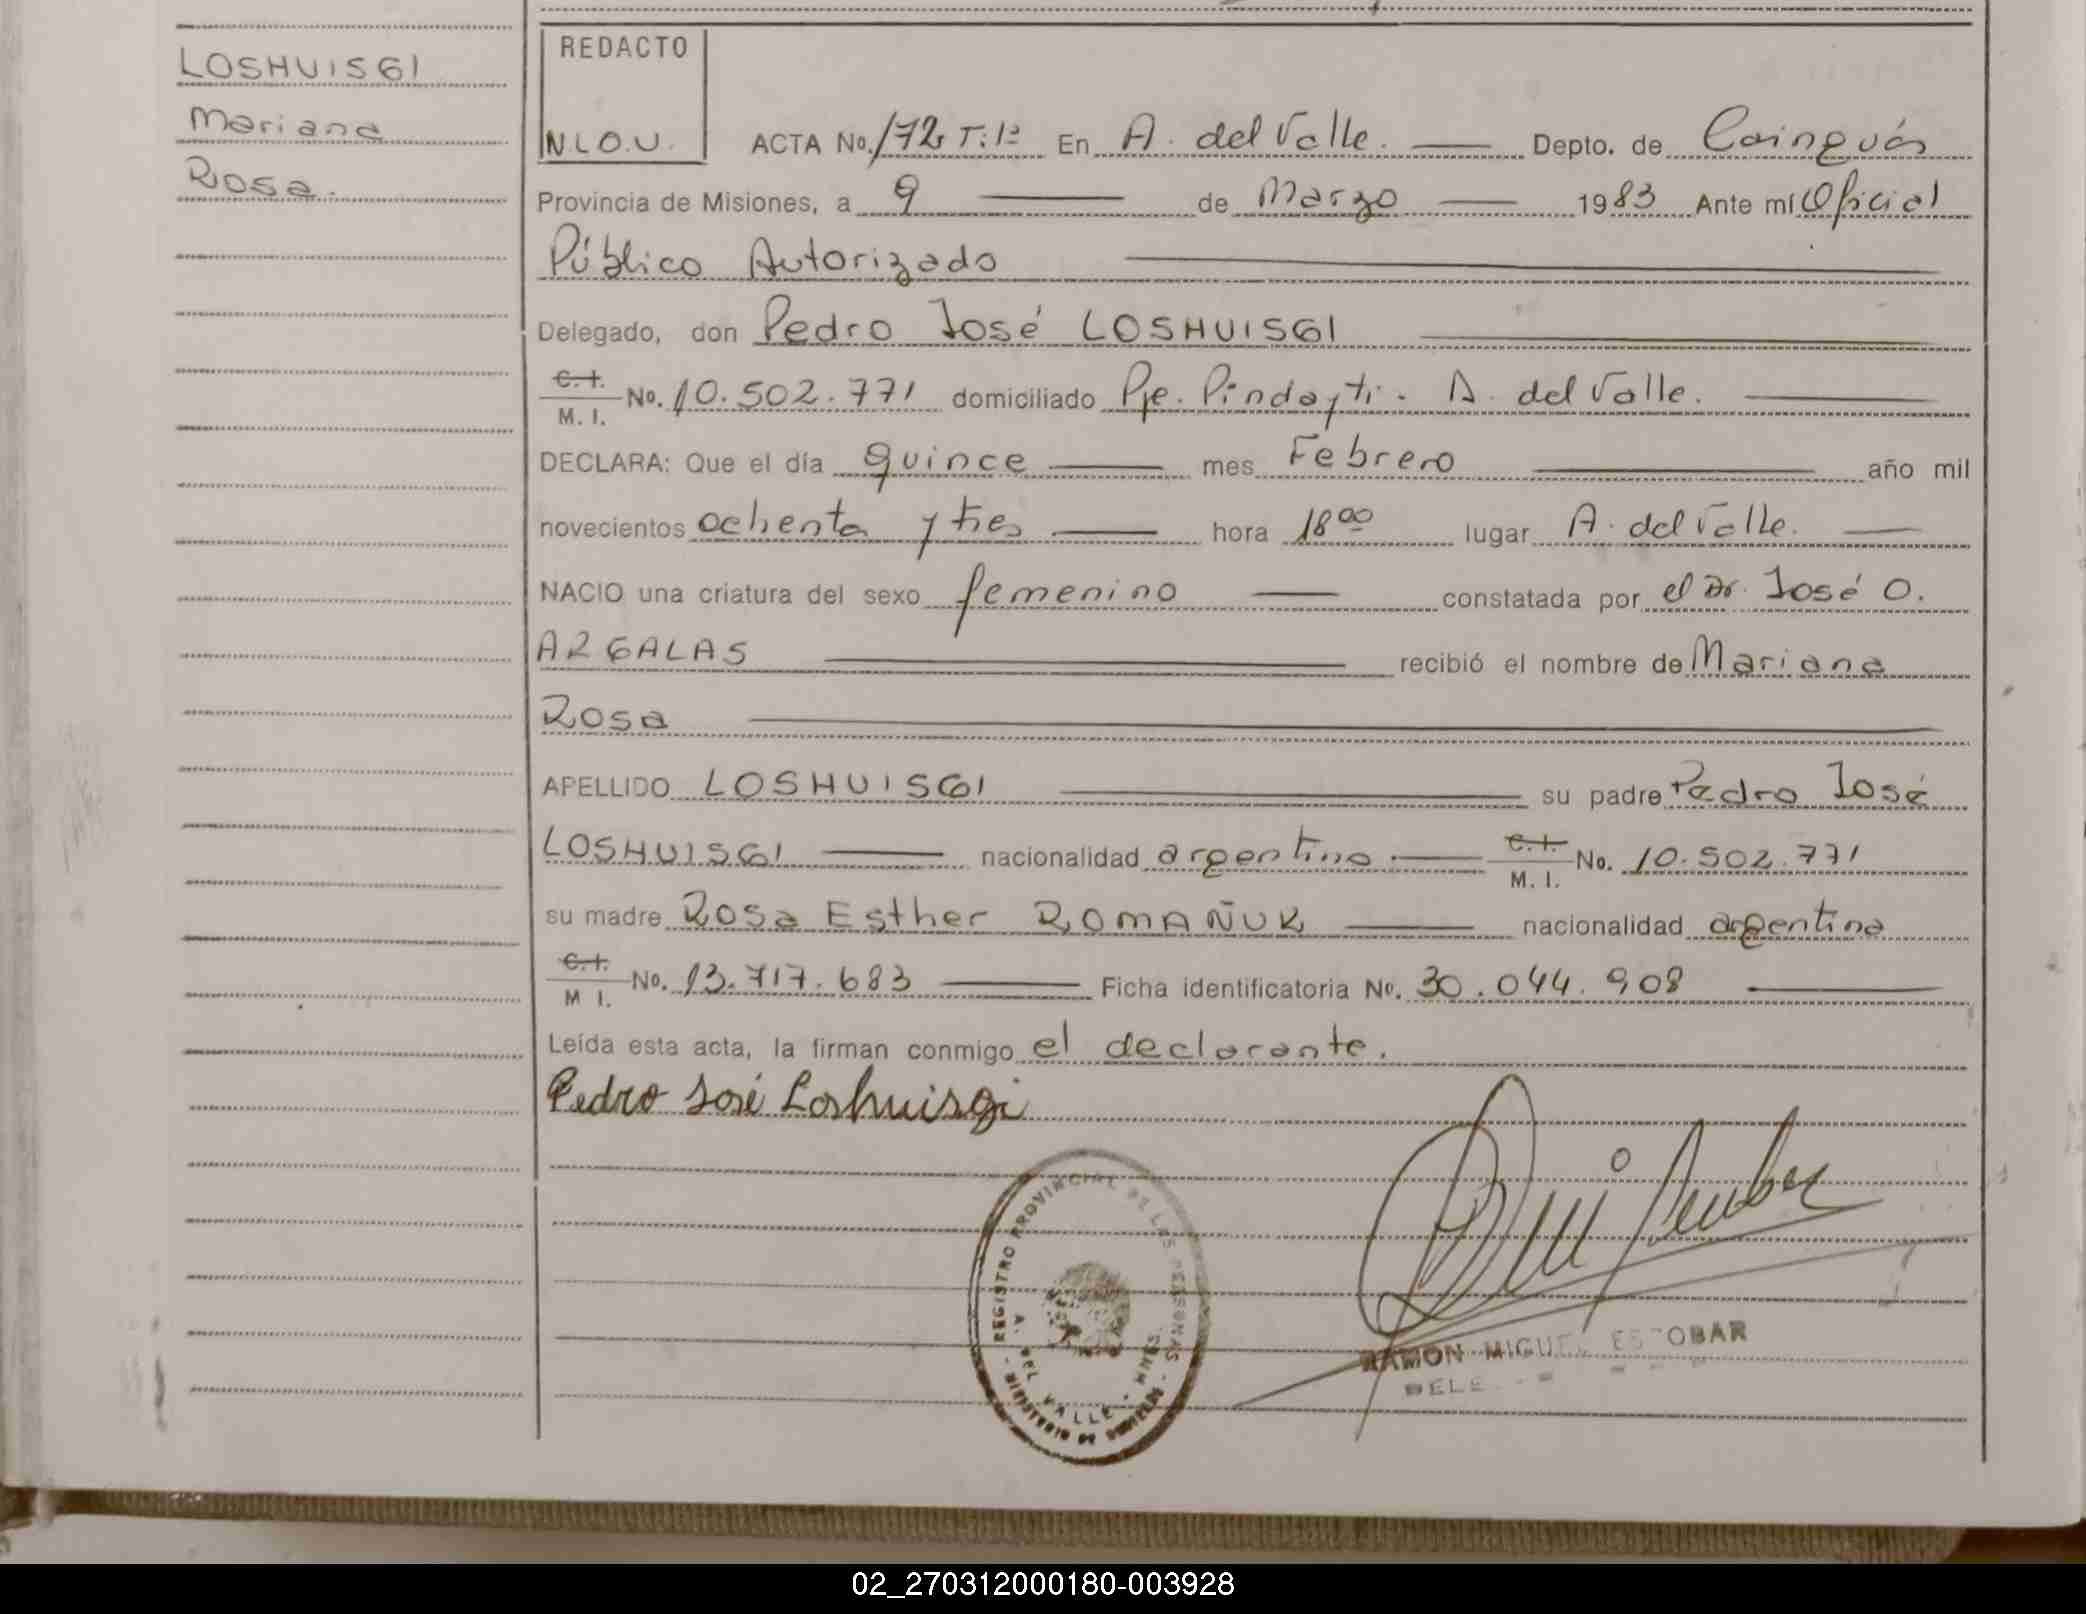 LOSHUISGI
Mariana
Rosa.
REDACTO
N.L.O.U.
ACTA No. 172 T:1º En A. del Valle. Depto. de Cainguás
Provincia de Misiones, a 9 de Marzo 1983 Ante mí Oficial
Público Autorizado
Delegado, don Pedro José LOSHUISGI
C.I. M. I. No. 10.502.771 domiciliado Pje. Pindayti. A. del Valle.
DECLARA: Que el día quince mes Febrero año mil
novecientos ochenta y tres hora 18 00 lugar A. del Valle.
NACIO una criatura del sexo femenino constatada por el Dr. José O.
ARGALAS recibió el nombre de Mariana
Rosa
APELLIDO LOSHUISGI su padre Pedro José
LOSHUISGI nacionalidad argentino C.I. M. I. No. 10.502.771
su madre Rosa Esther ROMAÑUK nacionalidad argentina
C.I. M I. No. 13.717.683 Ficha identificatoria No. 30.044.908
Leída esta acta, la firman conmigo el declarante.
Pedro José Loshuisgi
REGISTRO PROVINCIAL DE LAS PERSONAS
A. DEL VALLE - MNES.
RAMON MIGUEL ESCOBAR
02_270312000180-003928